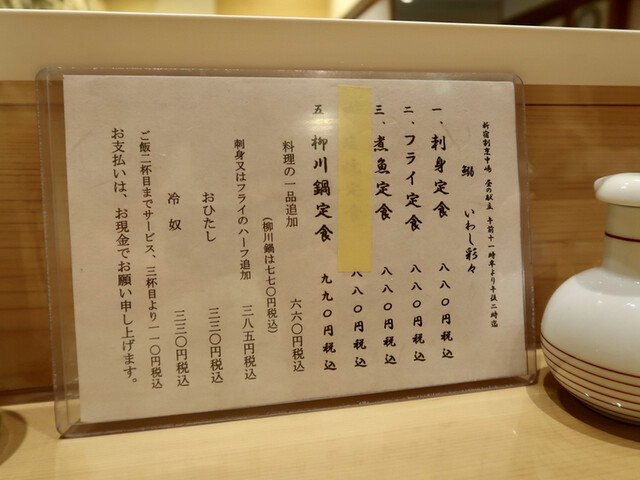 新宿割烹中嶋 昼の献立 午前十一時半より午後二時迄
鰯 いわし彩々
一、刺身定食 八八〇円税込
二、フライ定食 八八〇円税込
三、煮魚定食 八八〇円税込
八八〇円税込
五、柳川鍋定食 九九〇円税込
料理の一品追加 六六〇円税込
(柳川鍋は七七〇円税込)
刺身又はフライのハーフ追加 三八五円税込
おひたし 三三〇円税込
冷奴 三三〇円税込
ご飯二杯目までサービス、三杯目より一一〇円税込
お支払いは、お現金でお願い申し上げます。